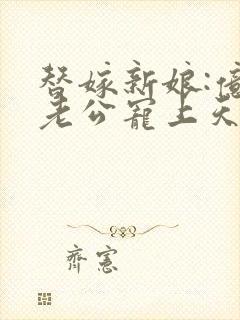 替嫁新娘:億
老公寵上天
齊憲